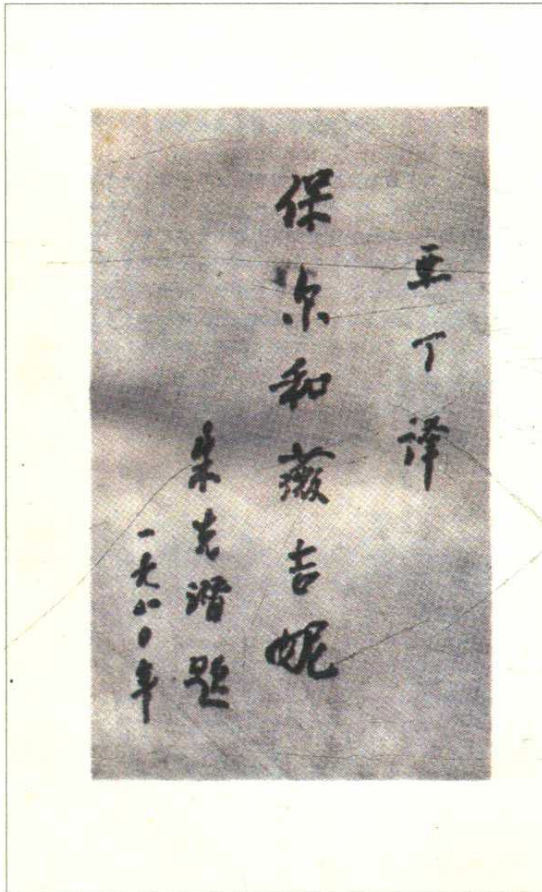 亚丁译
保尔和薇吉妮
朱光潜题
一九八〇年